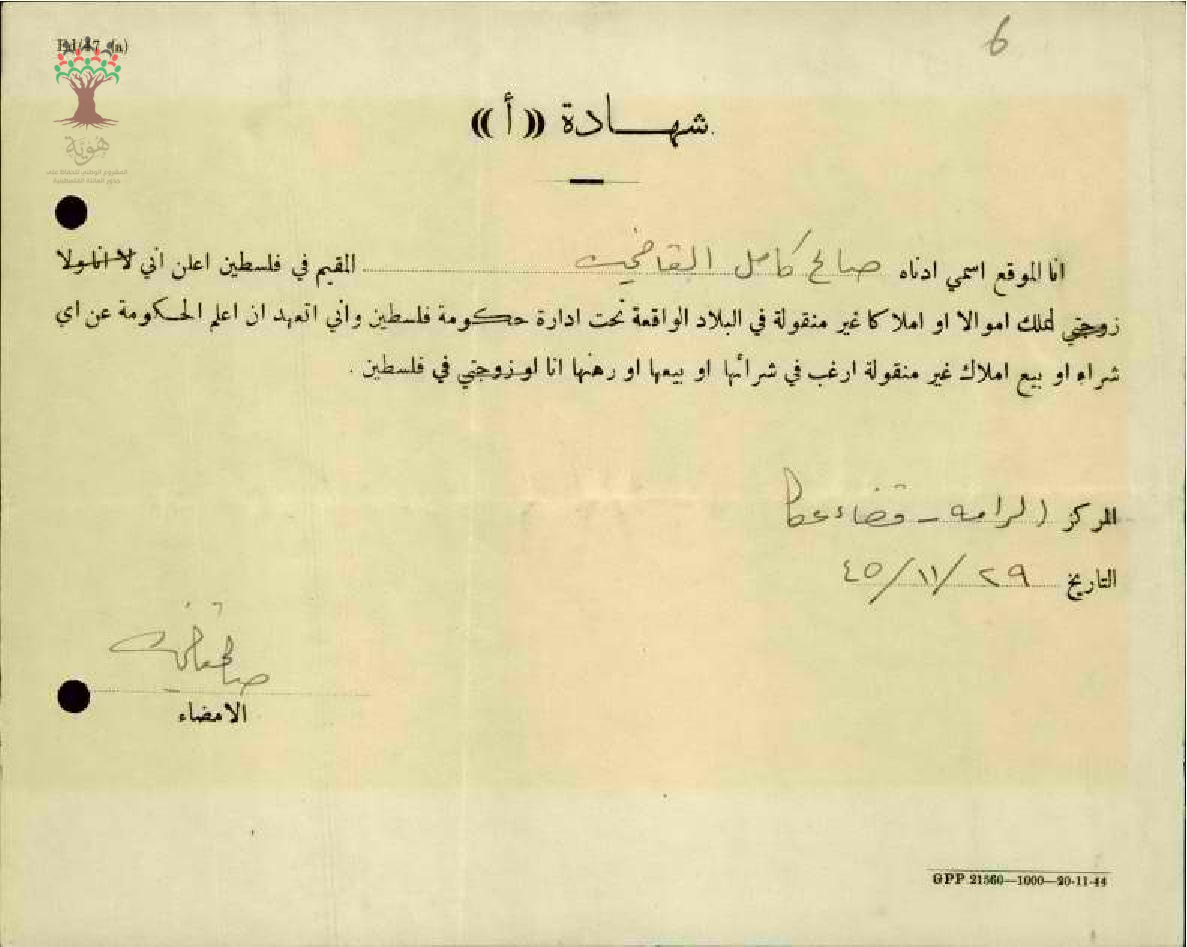 Ed/47 (a)
6
هوية
المشروع الوطني للحفاظ على
جذور العائلة الفلسطينية
شهـــادة «أ»
انا الموقع اسمي ادناه صالح كامل القاضي المقيم في فلسطين اعلن اني لا انا ولا
زوجتي نملك اموالا او املاكا غير منقولة في البلاد الواقعة تحت ادارة حكومة فلسطين واني اتعهد ان اعلم الحكومة عن اي
شراء او بيع املاك غير منقولة ارغب في شرائها او بيعها او رهنها انا او زوجتي في فلسطين .
المركز الرامه - قضاء عكا
التاريخ ٢٩/١١/٤٥
صالح القاضي
الامضاء
GPP 21560—1000—20-11-44